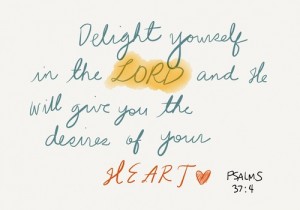 Delight yourself
in the LORD and He
will give you the
desires of your
HEART
PSALMS
37:4